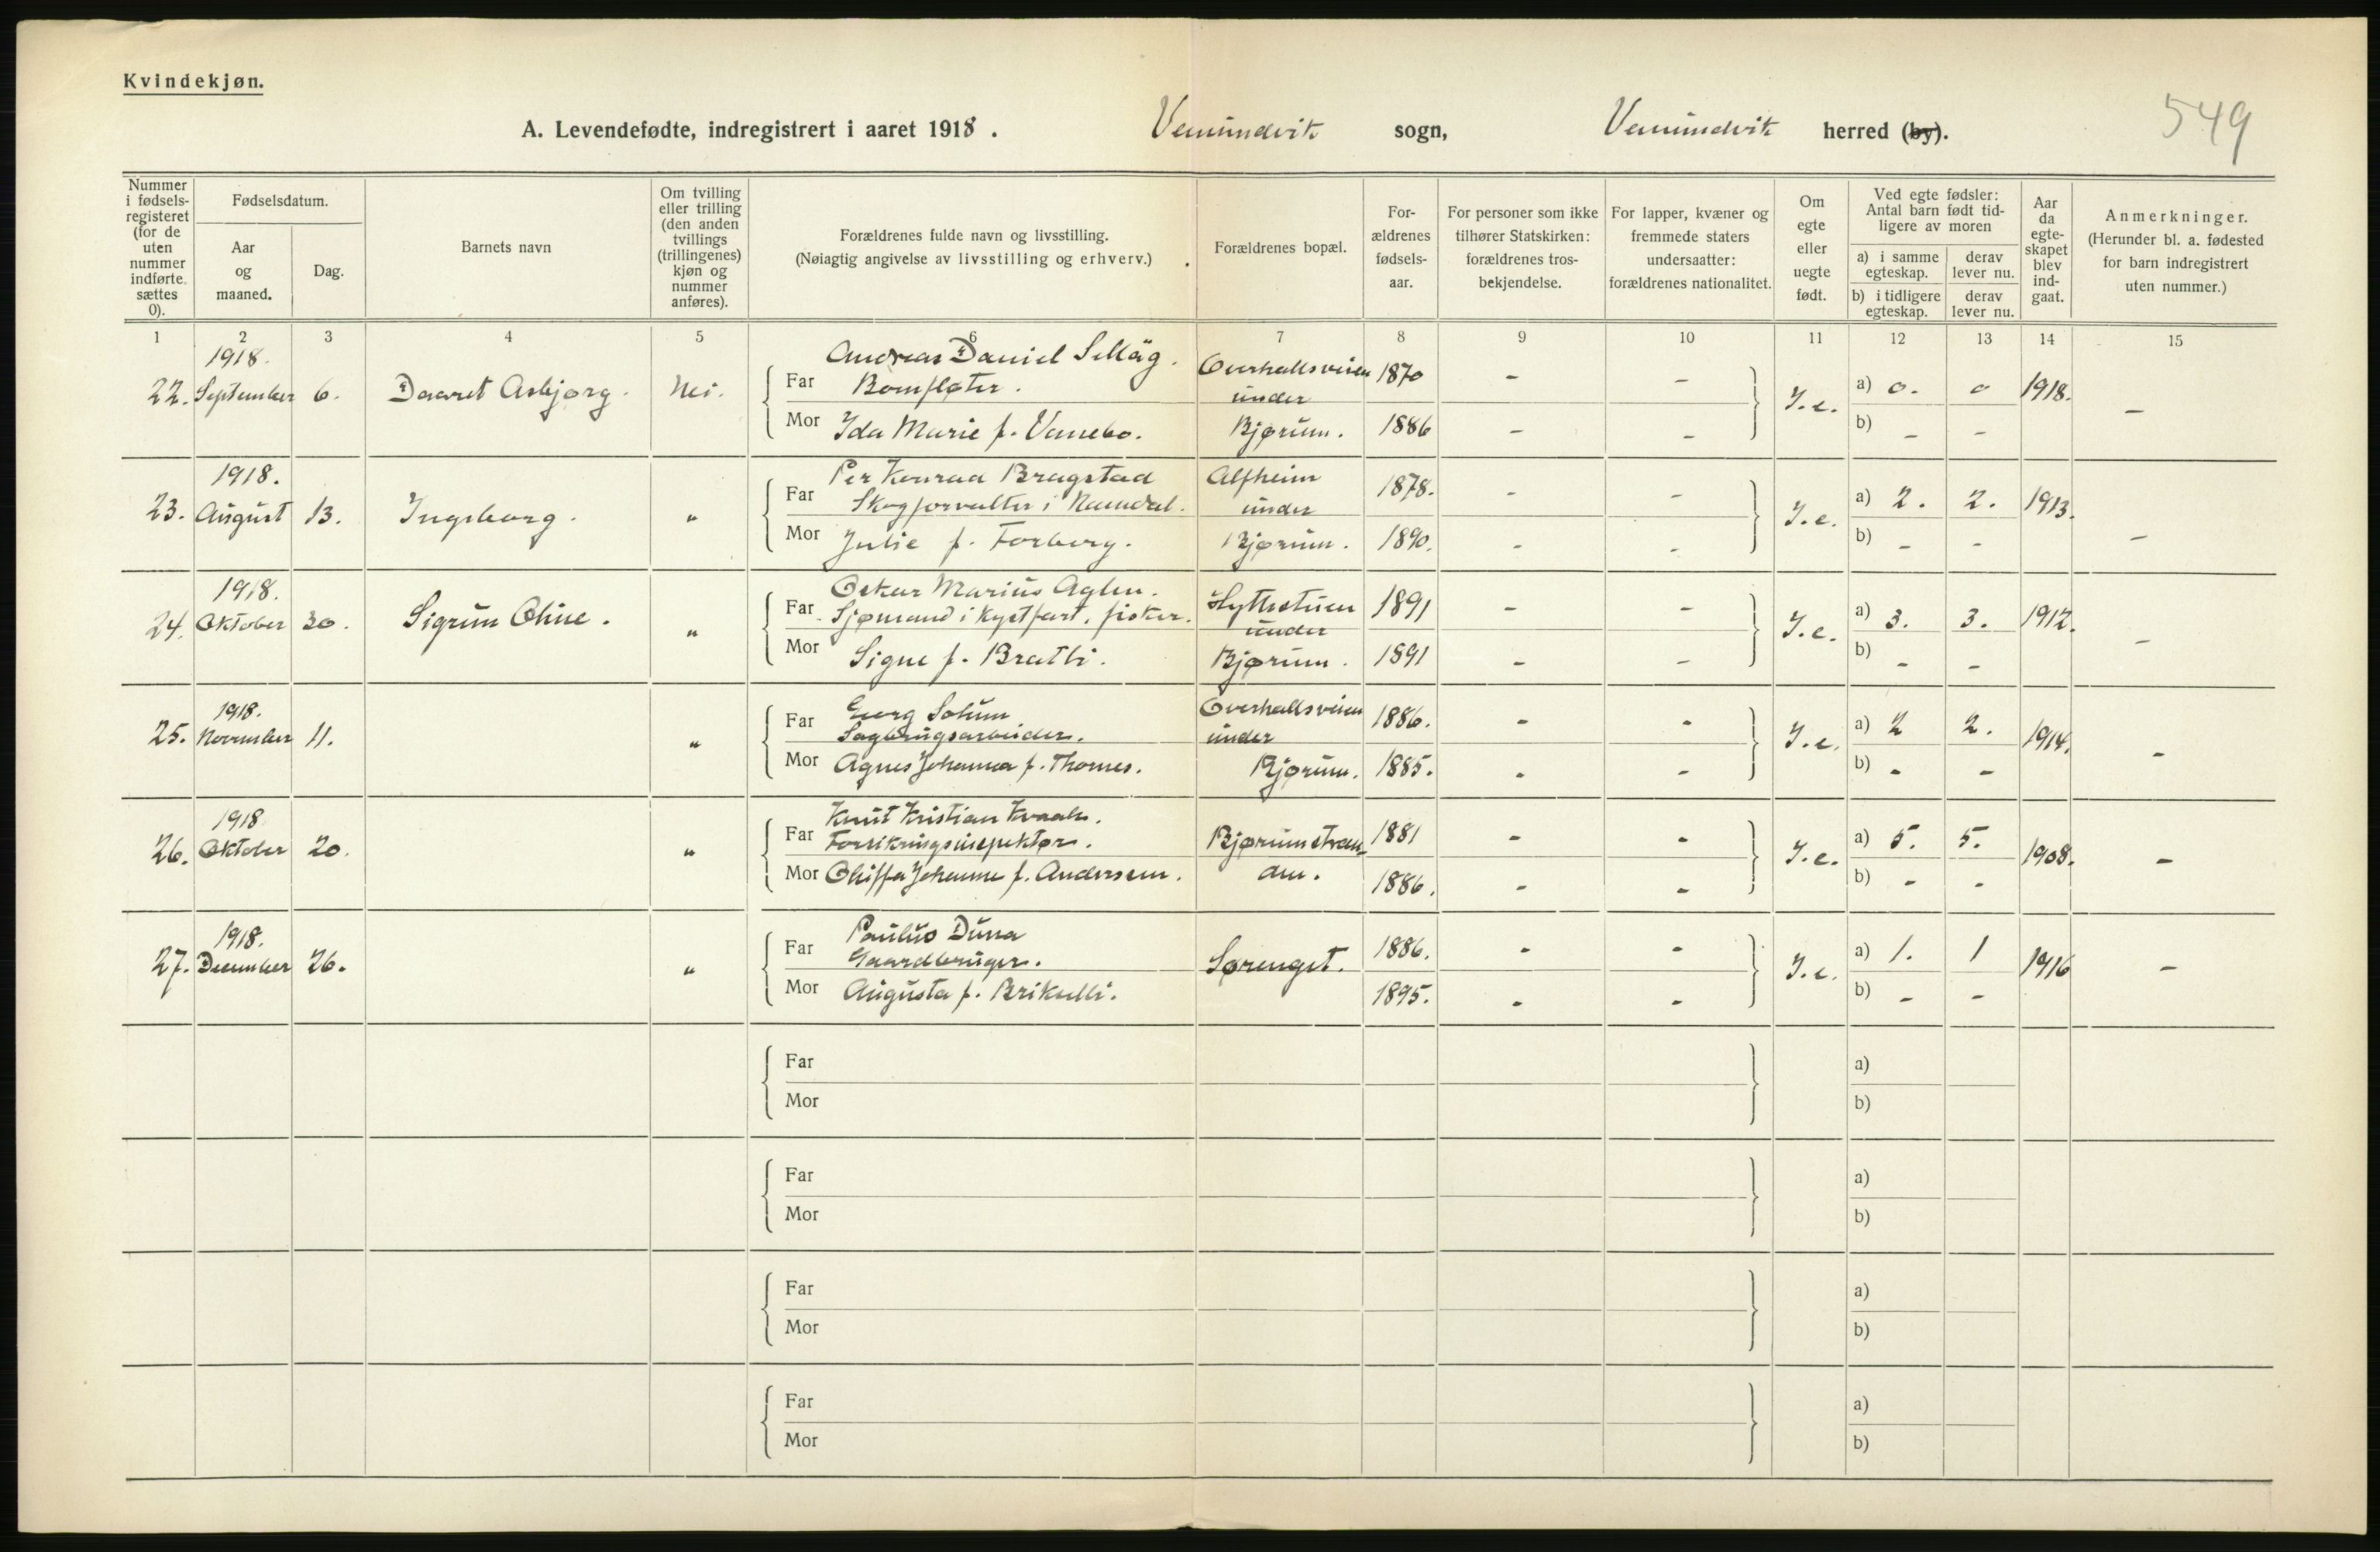 Kvindekjøn.
A. Levendefødte, indregistrert i aaret 1918. Vemundvik sogn, Vemundvik herred (by).
549
Nummer i fødselsregisteret (for de uten nummer indførte sættes 0).
Fødselsdatum.
Aar og maaned.
Dag.
Barnets navn
Om tvilling eller trilling (den anden tvillings (trillingenes) kjøn og nummer anføres).
Forældrenes fulde navn og livsstilling.
(Nøiagtig angivelse av livsstilling og erhverv.)
Forældrenes bopæl.
Forældrenes fødselsaar.
For personer som ikke tilhører Statskirken: forældrenes trosbekjendelse.
For lapper, kvæner og fremmede staters undersaatter: forældrenes nationalitet.
Om egte eller uegte født.
Ved egte fødsler: Antal barn født tidligere av moren
a) i samme egteskap.
derav lever nu.
b) i tidligere egteskap.
derav lever nu.
Aar da egteskapet blev indgaat.
Anmerkninger.
(Herunder bl. a. fødested for barn indregistrert uten nummer.)
1 2 3 4 5 6 7 8 9 10 11 12 13 14 15
22. 1918. September 6. Daaret Asbjørg. Nei.
Far Andreas Daniel Sellæg. Bomfløter. Overhallsveien under 1870 - -
Mor Ida Marie f. Vannebo. Bjørum. 1886 - -
I.e. a) 0. 0 1918. -
b) - -
23. 1918. August 13. Ingeborg. "
Far Per Konrad Bragstad Skogforvalter i Namdal. Alfheim under 1878. - -
Mor Julie f. Forberg. Bjørum. 1890. - -
I.e. a) 2. 2. 1913. -
b) - -
24. 1918. Oktober 30. Sigrun Oline. "
Far Oskar Marius Aglen. Sjømand i kystfart, fisker. Hyttestuen under 1891 - -
Mor Signe f. Bratli. Bjørum. 1891 - -
I.e. a) 3. 3. 1912. -
b) - -
25. 1918. November 11. "
Far Georg Solum Sagbrugsarbeider. Overhallsveien under 1886. - -
Mor Agnes Johanna f. Thomes. Bjørum. 1885. - -
I.e. a) 2 2. 1914. -
b) - -
26. 1918 Oktober 20. "
Far Knut Kristian Kvaale. Forsikringsinspektør. Bjørumstranden. 1881 - -
Mor Johanne f. Anderssen. 1886. - -
I.e. a) 5. 5. 1908. -
b) - -
27. 1918. December 26. "
Far Paulus Duna Gaardbruger. Sørenget. 1886. - -
Mor Augusta f. 1895. - -
I.e. a) 1. 1 1916 -
b) - -
Far a)
Mor b)
Far a)
Mor b)
Far a)
Mor b)
Far a)
Mor b)